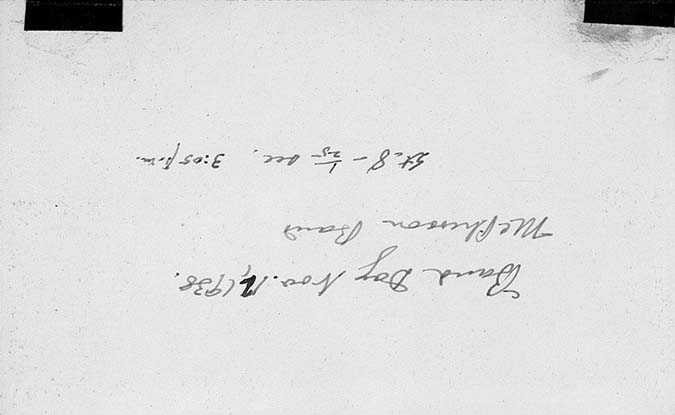 Band Day Nov. 12, 1938.
McPherson Band
St. 8 - 1/25 sec. 3:05 p.m.